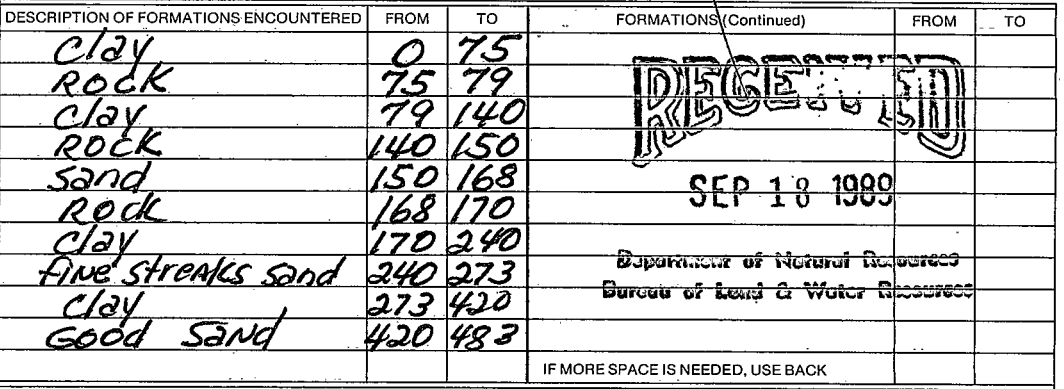 DESCRIPTION OF FORMATIONS ENCOUNTERED FROM TO FORMATIONS (Continued) FROM TO
Clay 0 75
ROCK 75 79
Clay 79 140
ROCK 140 150
Sand 150 168
ROCK 168 170
Clay 170 240
fine streaks sand 240 273
Clay 273 420
GOOD SAND 420 483
RECEIVED
SEP 18 1989
Department of Natural Resources
Bureau of Land & Water Resources
IF MORE SPACE IS NEEDED, USE BACK